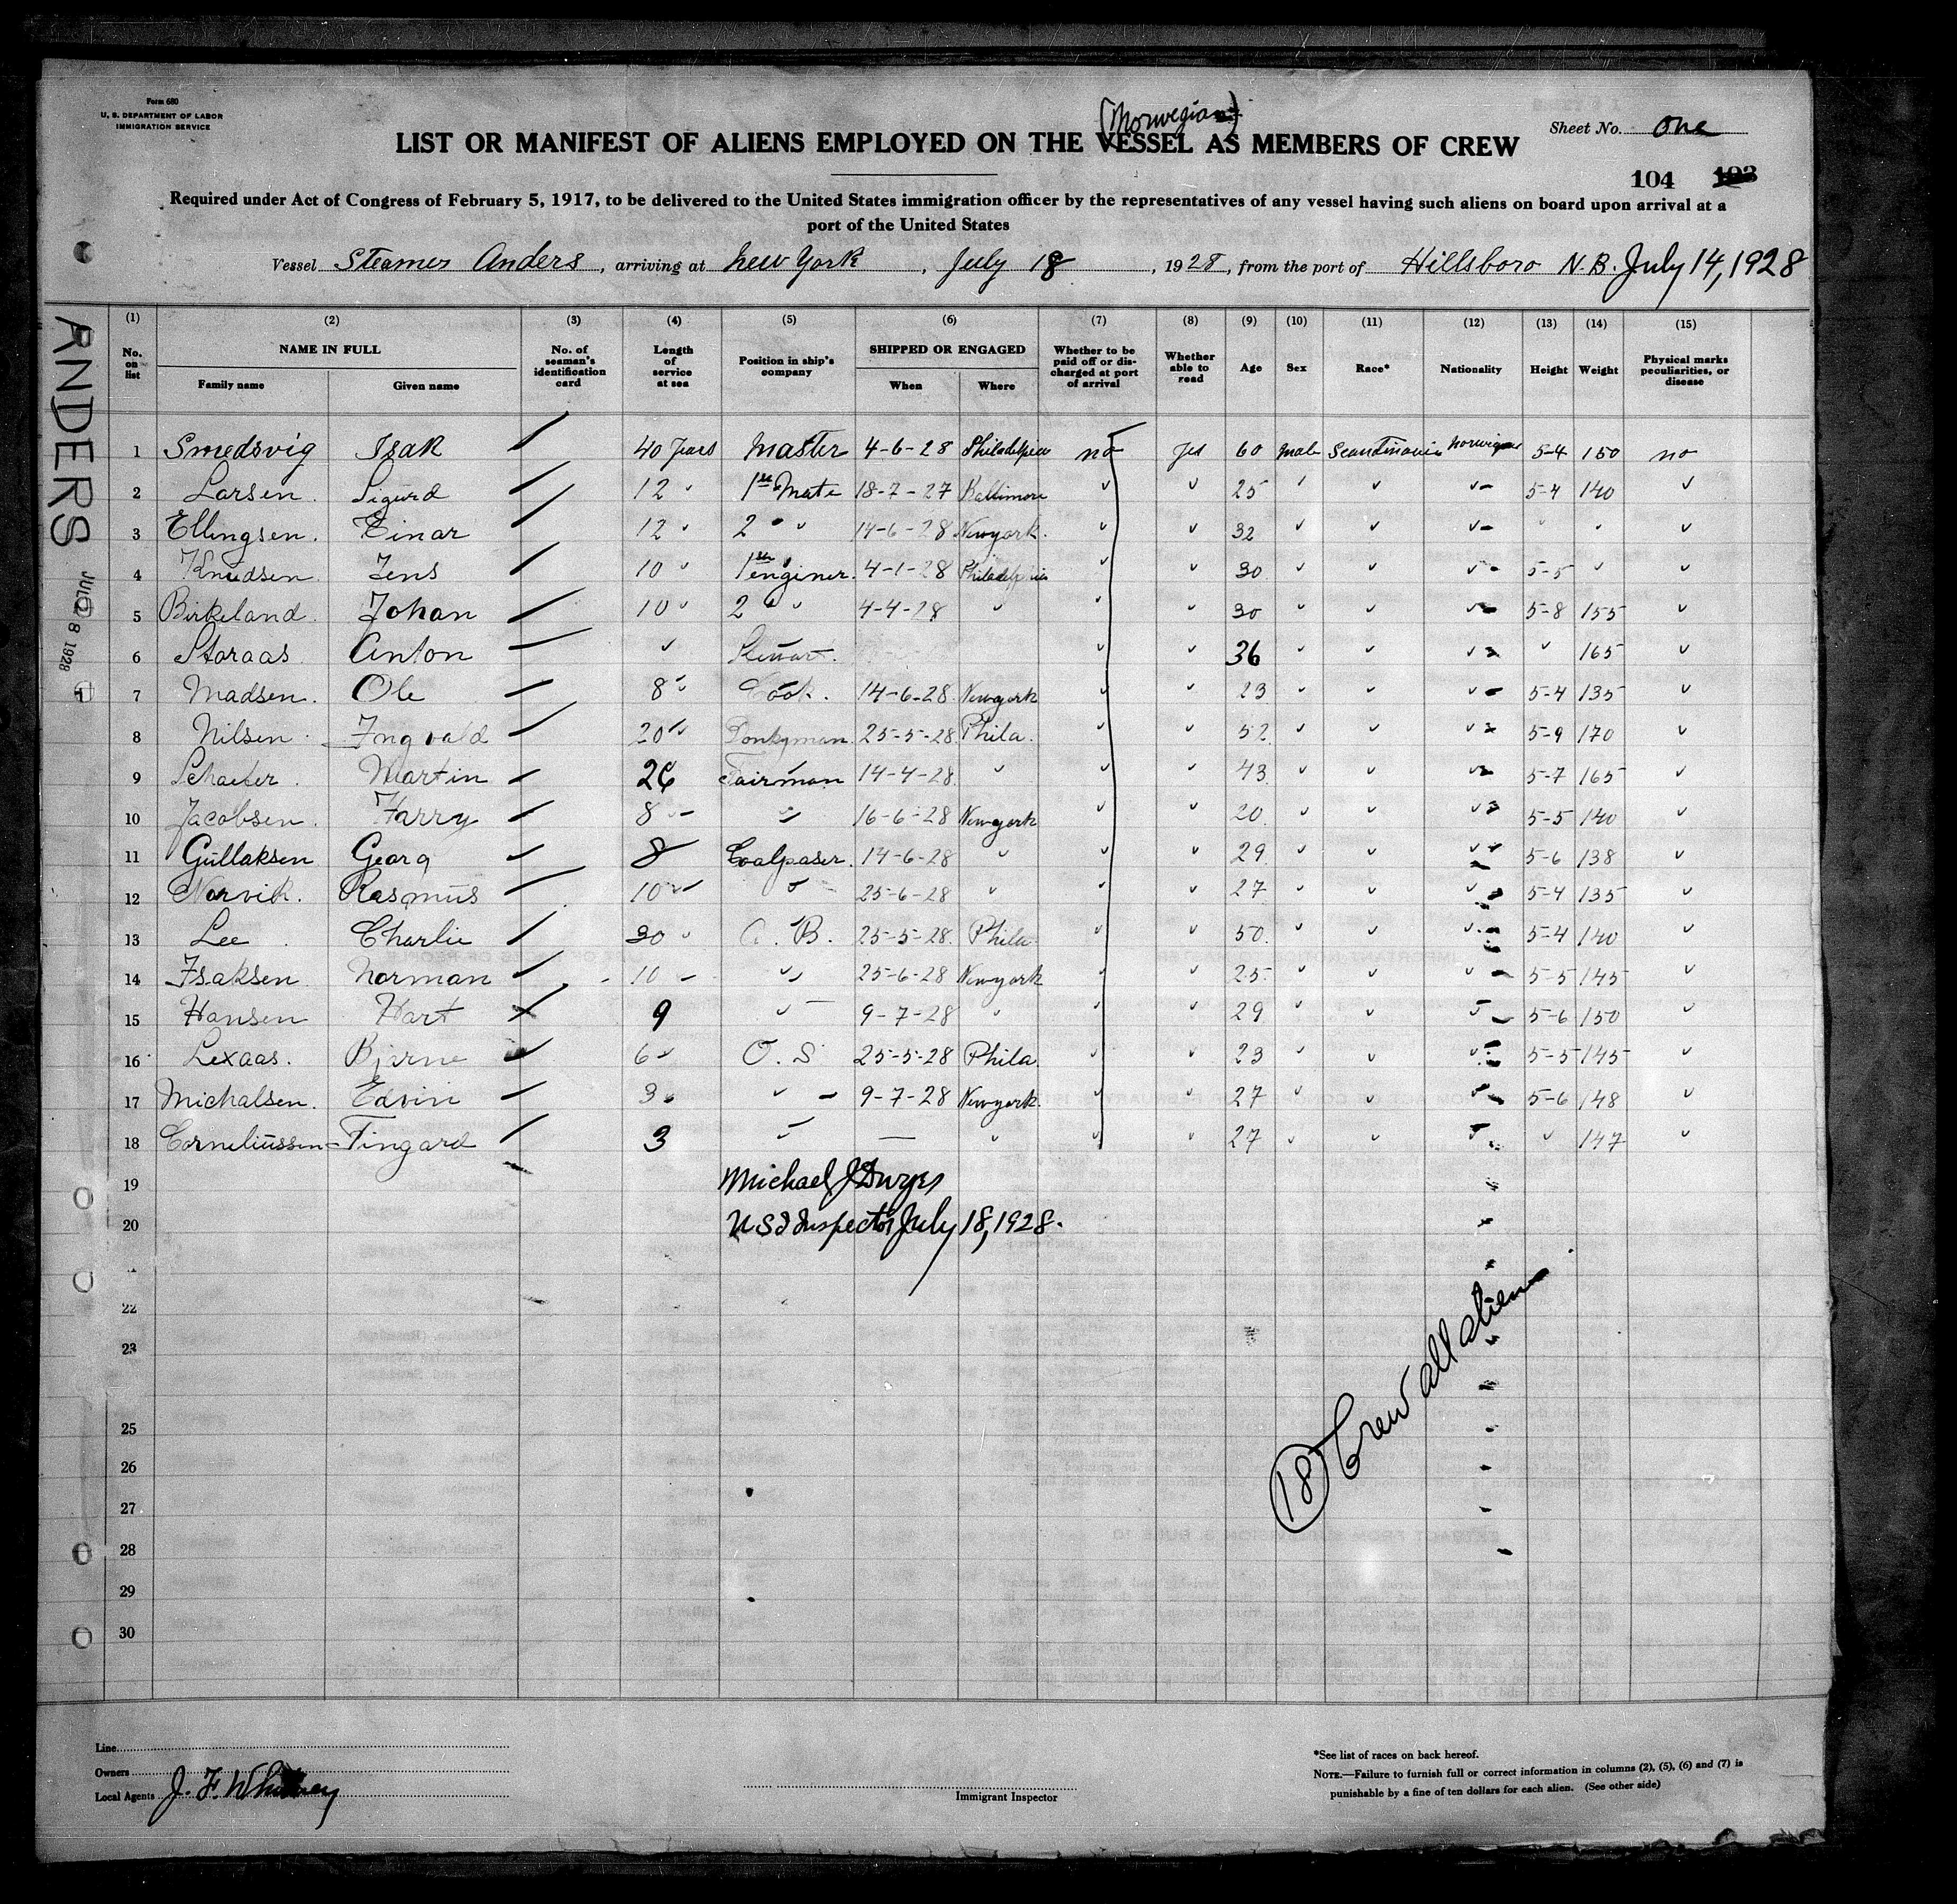 Form 680
U. S. DEPARTMENT OF LABOR
IMMIGRATION SERVICE
(Norwegian)
Sheet No. One
LIST OR MANIFEST OF ALIENS EMPLOYED ON THE VESSEL AS MEMBERS OF CREW
104 103
Required under Act of Congress of February 5, 1917, to be delivered to the United States immigration officer by the representatives of any vessel having such aliens on board upon arrival at a
port of the United States
Vessel Steamer Anders, arriving at New York, July 18, 1928, from the port of Hillsboro N.B. July 14, 1928
ANDERS
JUL 1928
(1) (2) (3) (4) (5) (6) (7) (8) (9) (10) (11) (12) (13) (14) (15)
No. on list
NAME IN FULL
Family name Given name
No. of seaman's identification card
Length of service at sea
Position in ship's company
SHIPPED OR ENGAGED
When Where
Whether to be paid off or discharged at port of arrival
Whether able to read
Age Sex Race* Nationality Height Weight
Physical marks peculiarities, or disease
1 Smedsvig Isak 40 years Master 4-6-28 Philadelphia no yes 60 male Scandinavia Norwigan 5-4 150 no
2 Larsen. Sigurd 12 " 1st Mate 18-7-27 Baltimore " " 25 " " " 5-4 140 "
3 Ellingsen. Einar 12 " 2 " " 14-6-28 Newyork. " " 32 " " " " " "
4 Knudsen Jens 10 " 1st enginer. 4-1-28 Philadelphia " " 30 " " " 5-5 " "
5 Birkeland. Johan 10 " 2 " " 4-4-28 " " " 30 " " " 5-8 155 "
6 Storaas Anton " Stewart. " " 36 " " " " 165 "
7 Madsen. Ole 8 " Cook. 14-6-28. Newyork " " 23 " " " 5-4 135 "
8 Nilsen. Ingvald 20 " Donkyman. 25-5-28. Phila. " " 52 " " " 5-9 170 "
9 Schaefer. Martin 26 Fairman 14-4-28 " " " 43 " " " 5-7 165 "
10 Jacobsen. Harry 8 " " 16-6-28 Newyork " " 20 " " " 5-5 140 "
11 Gullaksen Georg 8 Coalpaser. 14-6-28 " " " 29 " " " 5-6 138 "
12 Norvik. Rasmus 10 " " 25-6-28 " " " 27 " " " 5-4 135 "
13 Lee. Charlie 30 " A. B. 25-5-28. Phila " " 50 " " " 5-4 140 "
14 Isaksen Norman 10 " " 25-6-28 Newyork " " 25 " " " 5-5 145 "
15 Hansen Hart 9 " 9-7-28 " " " 29 " " " 5-6 150 "
16 Lexaas. Bjarne 6 " O. S 25-5-28 Phila. " " 23 " " " 5-5 145 "
17 Michalsen. Edvin 3 " " 9-7-28 Newyork. " " 27 " " " 5-6 148 "
18 Corneliussen 3 " — " " " 27 " " " " 147 "
19 Michael J Dwyer
20 USI Inspector July 18, 1928.
22
23
25
26
27
28
29
30
(18) Crew all alien
Line
Owners
Local Agents J. F. Whitney
Immigrant Inspector
*See list of races on back hereof.
NOTE.—Failure to furnish full or correct information in columns (2), (5), (6) and (7) is
punishable by a fine of ten dollars for each alien. (See other side)